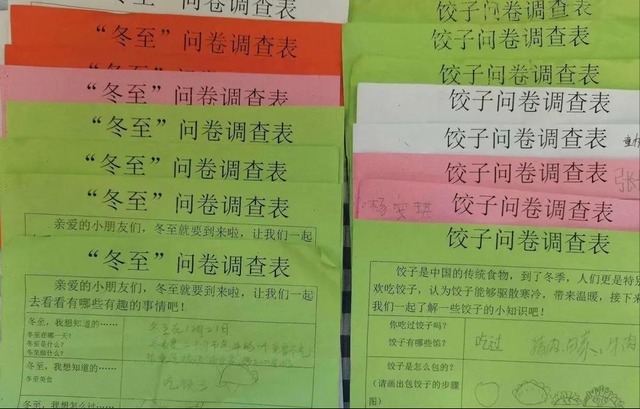 “冬至”问卷调查表
“冬至”问卷调查表
“冬至”问卷调查表
“冬至”问卷调查表
“冬至”问卷调查表
“冬至”问卷调查表
亲爱的小朋友们，冬至就要到来啦，让我们一起
“冬至”问卷调查表
亲爱的小朋友们，冬至就要到来啦，让我们一起
去看看有哪些有趣的事情吧！
冬至，我想知道的……
冬至在哪一天？
冬至是什么？
冬至做什么？
冬至，我想知道的……
冬至美食
吃饺子
冬至，我想怎么过……
饺子问卷调查表
饺子问卷调查表
饺子问卷调查表
饺子问卷调查表
饺子问卷调查表
饺子问卷调查表
饺子问卷调查表
饺子问卷调查表
饺子是中国的传统食物，到了冬季，人们更是特别
欢吃饺子，认为饺子能够驱散寒冷，带来温暖，接下来
我们一起了解一些饺子的小知识吧！
你吃过饺子吗？
饺子有哪些馅？
吃过
猪肉
牛肉
饺子是怎么包的？
（请画出包饺子的步骤
图）